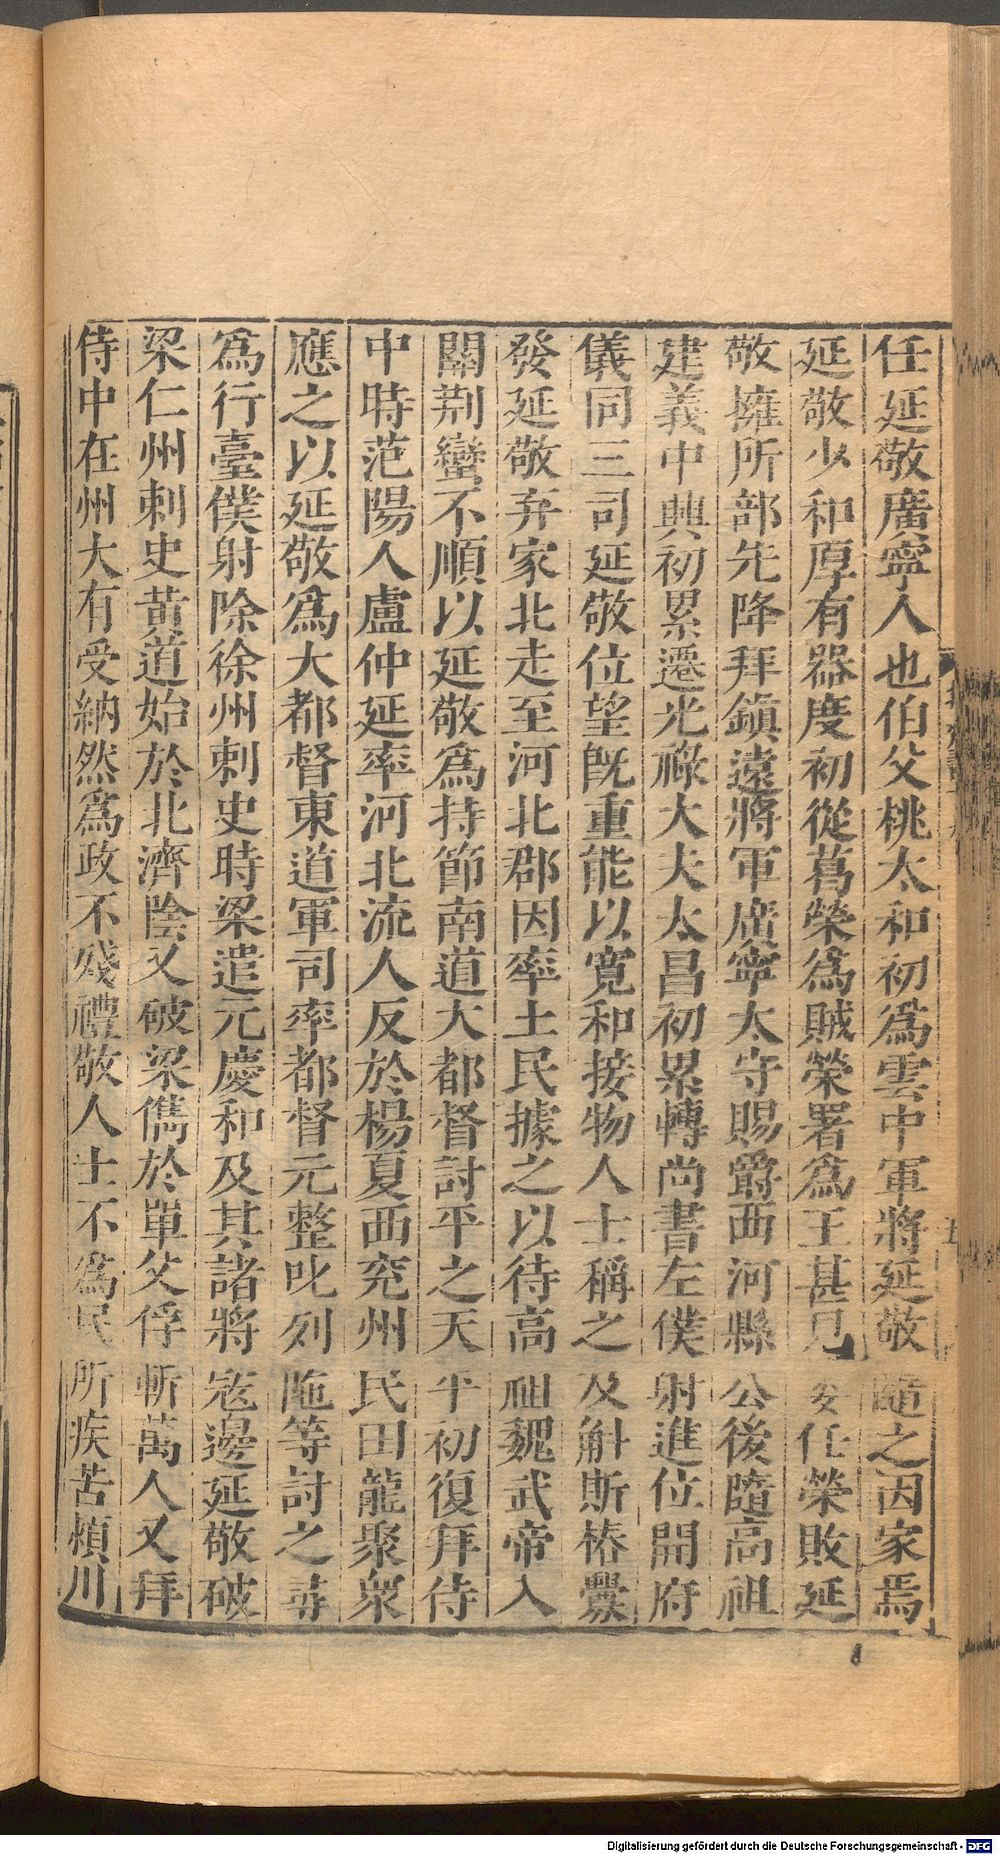 任延敬廣寧人也伯父桃太和初爲雲中軍將延敬隨之因家焉
延敬少和厚有器度初從葛榮爲賊榮署爲王甚見委任榮敗延
敬擁所部先降拜鎮遠將軍廣寧太守賜爵西河縣公後隨高祖
建義中興初累遷光祿大夫太昌初累轉尚書左僕射進位開府
儀同三司延敬位望旣重能以寬和接物人士稱之及斛斯椿釁
發延敬弃家北走至河北郡因率土民據之以待高祖魏武帝入
關荆蠻不順以延敬爲持節南道大都督討平之天平初復拜侍
中時范陽人盧仲延率河北流人反於楊夏西兖州民田龍聚衆
應之以延敬爲大都督東道軍司率都督元整叱列陁等討之尋
爲行臺僕射除徐州刺史時梁遣元慶和及其諸將寇邊延敬破
梁仁州刺史黄道始於北濟陰又破梁儁於單父俘斬萬人又拜
侍中在州大有受納然爲政不殘禮敬人士不爲民所疾苦熲川
Digitalisierung gefördert durch die Deutsche Forschungsgemeinschaft - DFG